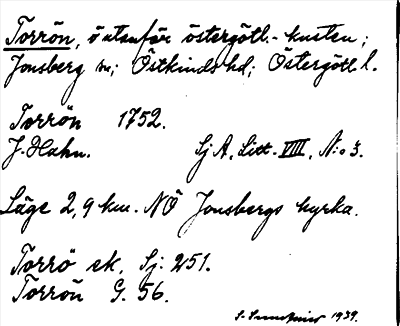 Torrön, östanför östergötl.-kusten;
Jonsberg sn; Östkinds hd; Östergötl l.
Torrön 1752.
J. Hahn. SjA, Litt. VIII, N:o 3.
Läge 2,9 km. NÖ Jonsbergs kyrka.
Torrö ek. Sj: 251.
Torrön G. 56.
1939.